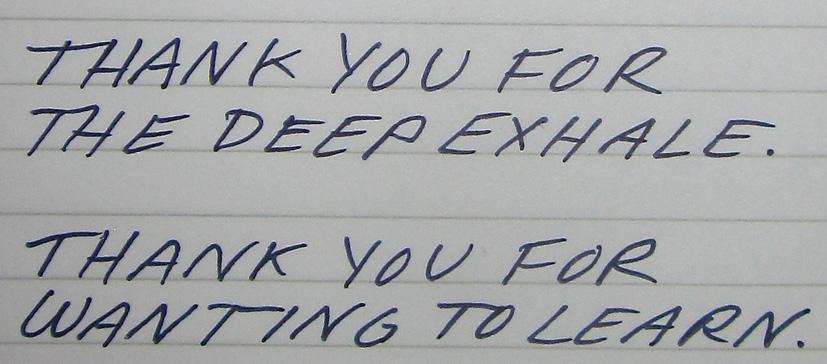 THANK YOU FOR
THE DEEP EXHALE.
THANK YOU FOR
WANTING TO LEARN.